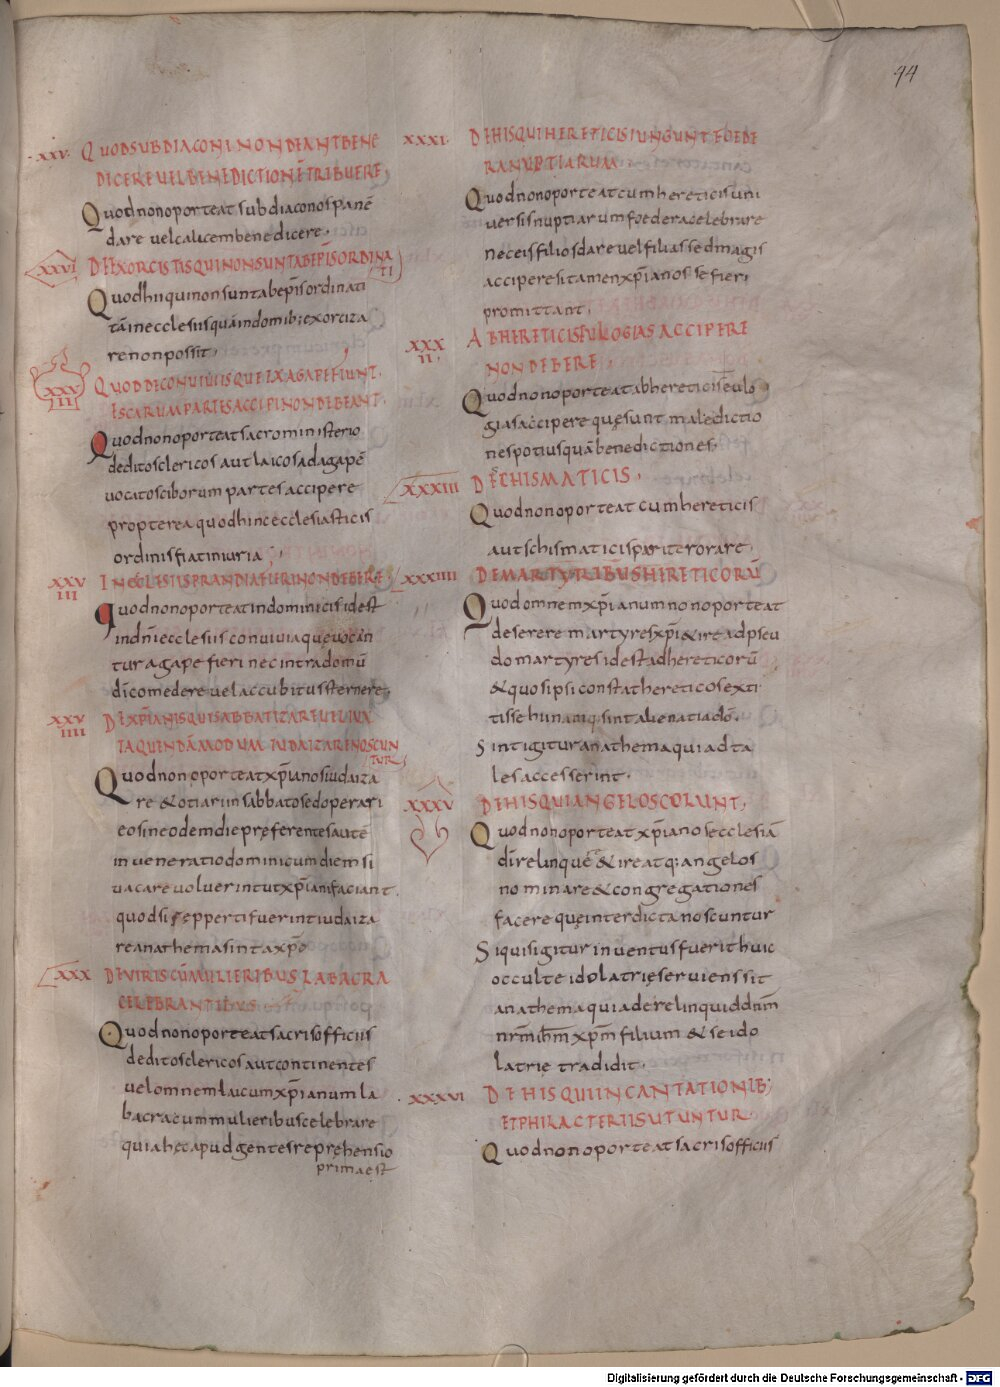 44
XXV. QUOD SUBDIACONI NON DEANT BENE
DICERE VEL BENEDICTIONĒ TRIBUERE,
Quod non oporteat subdiaconos panē
dare vel calicem benedicere.
XXVI DE EXORCISTIS QUI NON SUNT AB EPIS ORDINA
TI
Quod hii qui non sunt ab epis ordinati
tā in ecclesiis quā in domib; exorciza
re non possit,
XXV
III QUOD DE CONVIVIIS QUE EX AGAPE FIUNT.
ESCARUM PARTES ACCIPI NON DEBEANT.
Quod non oporteat sacro ministerio
deditos clericos aut laicos ad agapē
vocatos ciborum partes accipere
propterea quod hinc ecclesiasticis
ordinis fiat iniuria
XXV
III IN ECCLESIIS PRANDIA FIERI NON DEBERE.
Quod non oporteat in dominicis id est
in dn̄i ecclesiis convivia que vocan
tur agape fieri nec intra domū
dī comedere vel accubitus sternere,
XXV
IIII DE XP̄IANIS QUI SABBATIZARE VEL IUX
TA QUENDĀ MODUM IUDAIZARE NOSCUN
TUR
Quod non oporteat xp̄ianos iudaiza
re & otiari in sabbato sed operari
eos in eodem die preferentes autē
in veneratio dominicum diem si
vacare voluerint ut xp̄iani faciant.
quod si repperti fuerint iudaiza
re anathema sint a xp̄o
XXX DE VIRIS CŪ MULIERIBUS LABACRA
CELEBRANTIBUS
Quod non oporteat sacris officiis
deditos clericos aut continentes
vel omnem laicum xp̄ianum la
bacra cum mulieribus celebrare
quia hec apud gentes reprehensio
prima est
XXXI. DE HIS QUI HERETICIS IUNGUNT FOEDE
RA NUPTIARUM
Quod non oporteat cum hereticis uni
versis nuptiarum foedera celebrare
nec eis filios dare vel filias sed magis
accipere si tamen xp̄ianos se fieri
promittant,
XXX
II. AB HERETICIS EULOGIAS ACCIPERE
NON DEBERE,
Quod non oporteat ab hereticis eulo
gias accipere que sunt maledictio
nes potius quā benedictiones,
XXXIII DE SCHISMATICIS,
Quod non oporteat cum hereticis
aut schismaticis pariter orare,
XXXIIII DE MARTYRIBUS HERETICORŪ
Quod omnem xp̄ianum non oporteat
deserere martyres xp̄i & ire ad pseu
do martyres id est ad hereticorū
& quos ipsi constat hereticos exti
tisse hi namq; sint alienati a dō.
Sint igitur anathema qui ad ta
les accesserint.
XXXV DE HIS QUI ANGELOS COLUNT,
Quod non oporteat xp̄ianos ecclesiā
dī relinquere & ire atq; angelos
nominare & congregationes
facere que interdicta noscuntur
Si quis igitur inventus fuerit huic
occulte idolatrie serviens sit
anathema quia dereliquid dn̄m
nr̄m ihm̄ xpm̄ filium & se ido
latrie tradidit.
XXXVI DE HIS QUI INCANTATIONIB;
ET PHILACTERIIS UTUNTUR.
Quod non oporteat sacris officiis
Digitalisierung gefördert durch die Deutsche Forschungsgemeinschaft - DFG